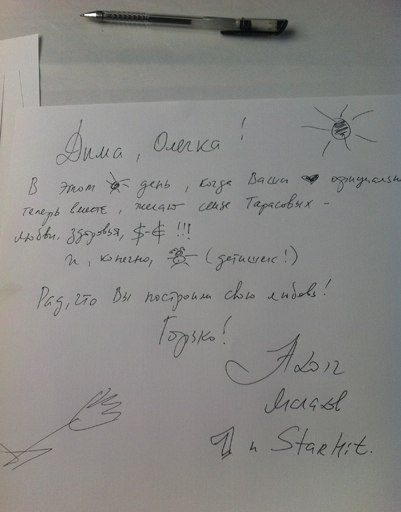 Дима, Олечка!
В этот день, когда Ваши официально
теперь вместе, желаю семье Тарасовых -
любви, здоровья, $-€ !!!
и, конечно, (детишек!)
Рад, что Вы построили свою любовь!
Горько!
и StarHit.